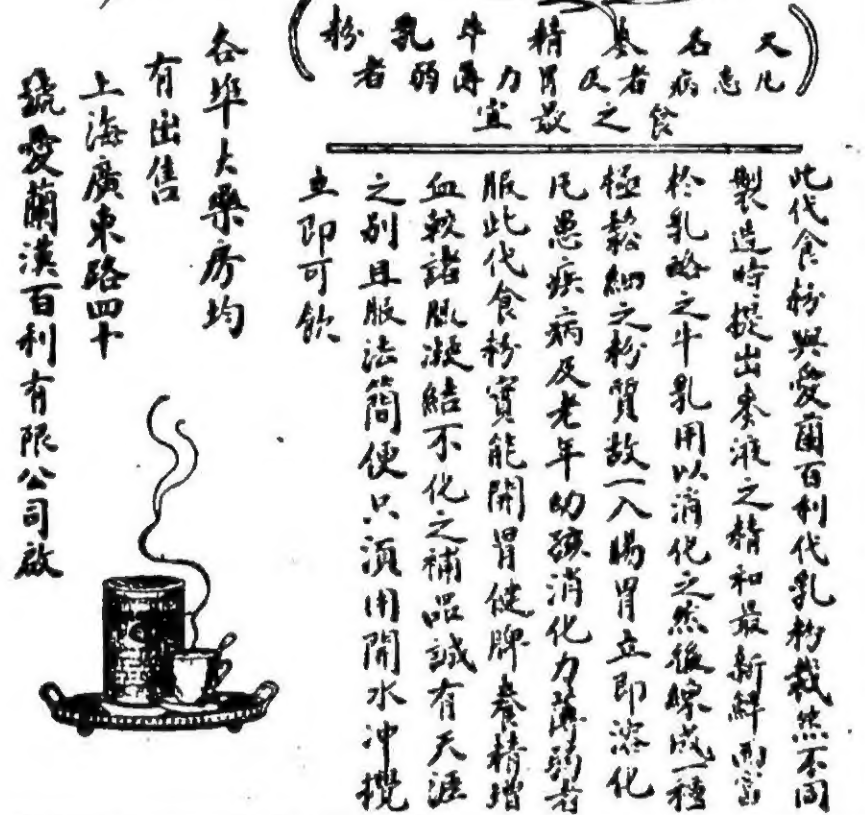 又名麥精牛乳粉
凡患病者及胃力薄弱者
食之最宜
此代食粉與愛蘭百利代乳粉截然不同
製造時提出麥液之精和最新鮮而富
於乳酪之牛乳用以消化之然後煉成一種
極鬆細之粉質故一入腸胃立即溶化
凡患疾病及老年幼孩消化力薄弱者
服此代食粉實能開胃健脾養精增
血較諸服凝結不化之補品誠有天涯
之別且服法簡便只須用開水沖攪
立即可飲
各埠大藥房均
有出售
上海廣東路四十
號愛蘭漢百利有限公司啟